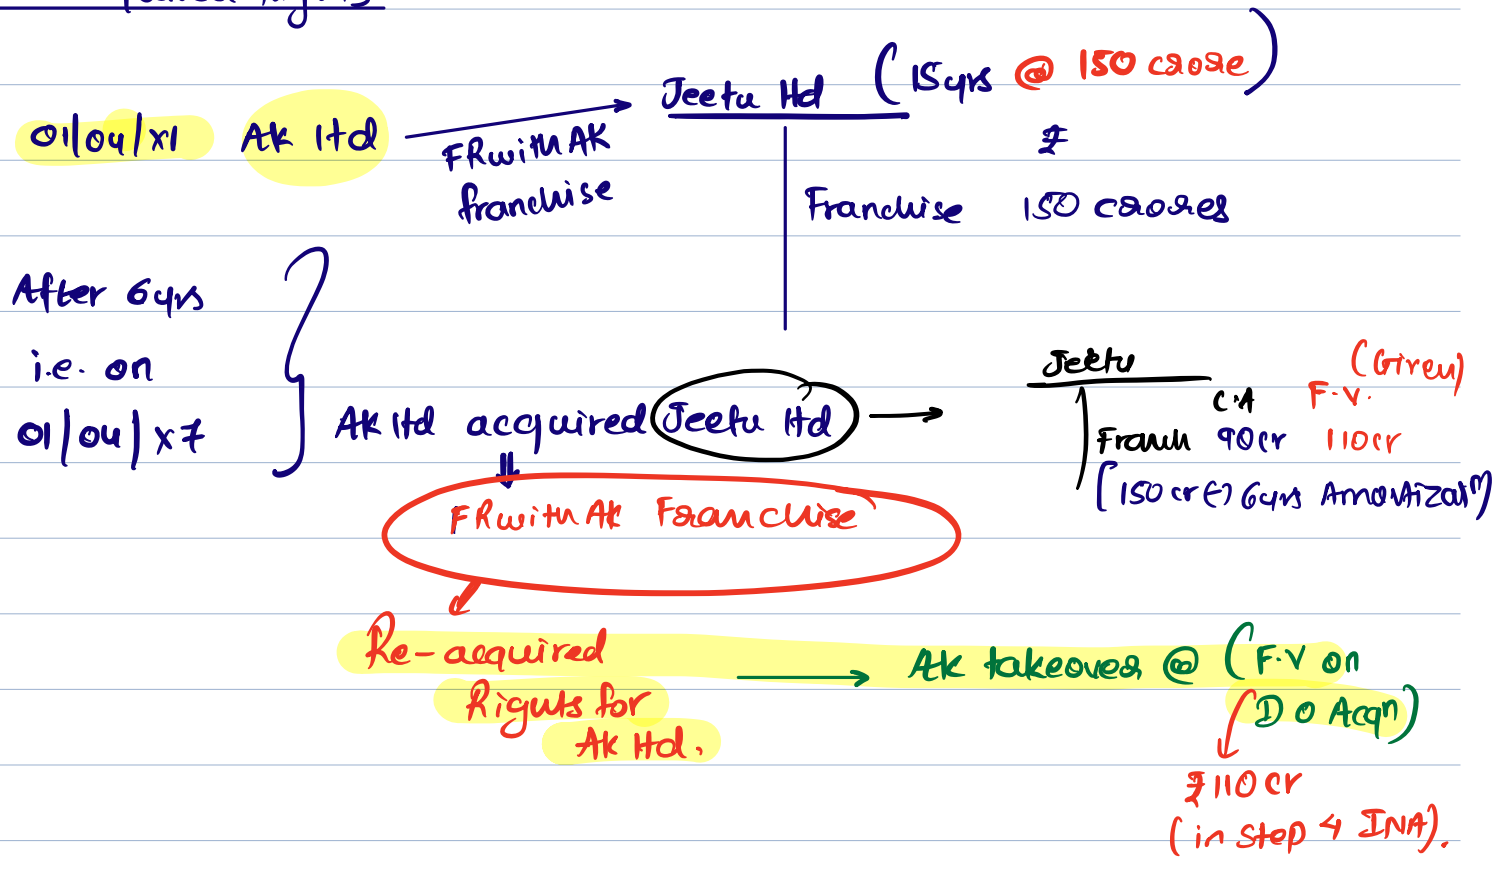 Rights
01/04/x1 AK ltd
FRwithAK
franchise
Jeetu ltd (15yrs @ 150 crore)
₹
Franchise 150 crores
After 6yrs
i.e. on
01/04/x7
AK ltd acquired Jeetu ltd
Jeetu (Given)
C.A F.V.
Franch 90cr 110cr
(150cr (-) 6yrs Amortizatn)
FRwithAK Franchise
Re-acquired
Rights for
AK ltd.
AK takeover @ (F.V on
D O Acqn)
₹110cr
(in Step 4 INA).